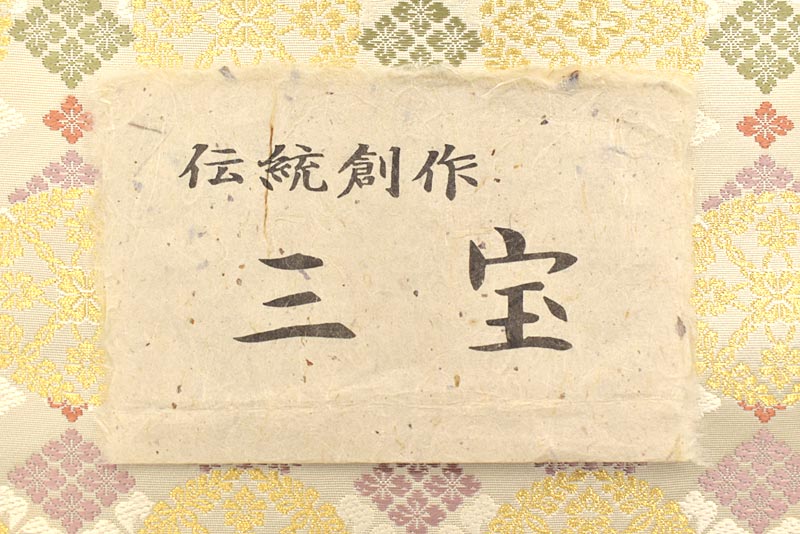 伝統創作
三宝